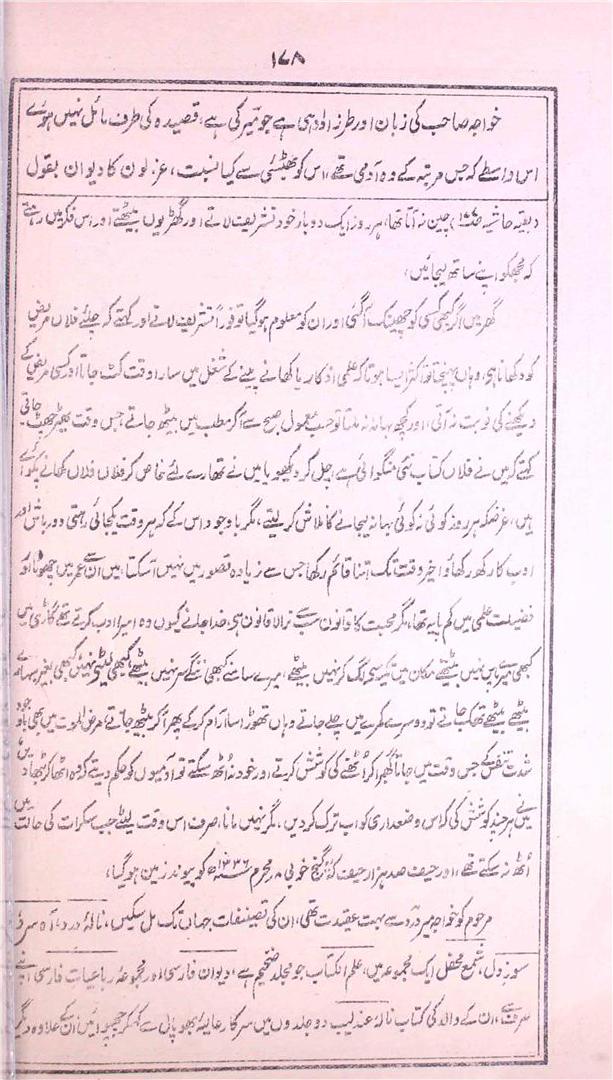 ۱۷۸
خواجہ صاحب کی زبان اور طرز ادا وہی ہے جو میر کی ہے، قصیدہ کی طرف مائل نہیں ہوئے
اس واسطے کہ جس مرتبہ کے وہ آدمی تھے، اس کو بھٹئی سے کیا نسبت، غزلوں کا دیوان بقول
(بقیہ حاشیہ صفحہ ۱۷۷) چین نہ آتا تھا، ہر روز ایک دو بار خود تشریف لاتے اور گھڑیوں بیٹھتے اور اس فکر میں رہتے
کہ مجھکو اپنے ساتھ لیجائیں،
گھر میں اگر کبھی کسی کو چھینک آگئی اور ان کو معلوم ہو گیا تو فوراً تشریف لاتے اور کہتے کہ چلئے فلاں مریض
کو دکھانا ہی، وہاں پہنچتا تو اکثر ایسا ہوتا کہ علمی اذکار یا کھانے پینے کے شغل میں سارا وقت کٹ جاتا اور کسی مریض کے
دیکھنے کی نوبت نہ آتی، اور کچھ بہانہ نہ ملتا تو حسب معمول صبح سے آکر مطب میں بیٹھ جاتے، جس وقت بھیڑ چھٹ جاتی
کہتے کہ میں نے فلاں کتاب نئی منگوائی ہے، چل کر دیکھو یا میں نے تمھارے لئے خاص کر فلاں فلاں کھانے پکوائے
ہیں، غرضکہ ہر روز کوئی نہ کوئی بہانہ لیجانے کا تلاش کر لیتے، مگر باوجود اس کے کہ ہر وقت یکجائی رہتی دور باش اور
ادب کا رکھ رکھاؤ اخیر وقت تک اتنا قائم رکھا جس سے زیادہ تصور میں نہیں آسکتا، میں ان سے عمر میں چھوٹا اور
فضیلت علمی میں کم پایہ تھا، مگر محبت کا قانون سب سے نرالا قانون ہی، خدا جانے کیوں وہ میرا ادب کرتے تھے گاڑی میں
کبھی میرے پاس نہیں بیٹھے مکان میں تکیہ سے لگ کر نہیں بیٹھے، میرے سامنے کبھی ننگے سر نہیں بیٹھے، کبھی لیٹے نہیں کبھی بغیر سہارے
بیٹھے بیٹھے تھک جاتے تو دوسرے کمرے میں چلے جاتے وہاں تھوڑا سا آرام کر کے پھر آکر بیٹھ جاتے، مرض الموت میں بھی باوجود
شدت تنفس کے جس وقت میں جاتا گھبرا کر اٹھنے کی کوشش کرتے اور خود نہ اٹھ سکتے تو آدمیوں کو حکم دیتے کہ وہ اٹھا کر بٹھا دیں
میں نے ہر چند کوشش کی کہ اس وضعداری کو اب ترک کر دیں، مگر نہیں مانا، صرف اس وقت لیٹے جب سکرات کی حالت میں
اٹھ نہ سکتے تھے، اور حیف صد ہزار حیف کہ یہ گنج خوبی ۸ محرم ۱۳۳۶ھ کو پیوند زمین ہو گیا،
مرحوم کو خواجہ میر درد سے بہت عقیدت تھی، ان کی تصنیفات جہاں تک مل سکیں، نالۂ درد، آہ سرد
سوز دل، شمع محفل ایک مجموعہ میں، علم الکتاب جو مجلد ضخیم ہے، دیوان فارسی اور مجموعۂ رباعیات فارسی اپنے
ان کے والد کی کتاب نالۂ عندلیب دو جلدوں میں سرکار عالیۂ بھوپال سے کہکر چھپوائیں ان کے علاوہ دیگر